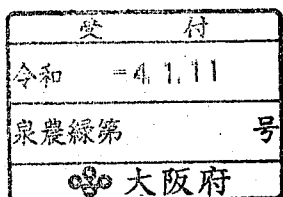 受付
令和 -4.1.11
泉農緑第 号
大阪府